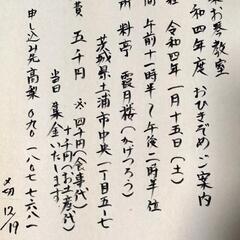 お琴教室
令和四年度 おひきぞめご案内
令和四年一月十五日(土)
間 午前十一時半〜午後二時半位
所 料亭 霞月楼(かげつろう)
茨城県土浦市中央一丁目五-七
費 五千円 ※四千円(食事代)
十千円(お土産代)
当日集金いたします
申し込み先 高梨 〇九〇 一八〇七 七六八一
〆切 12/19